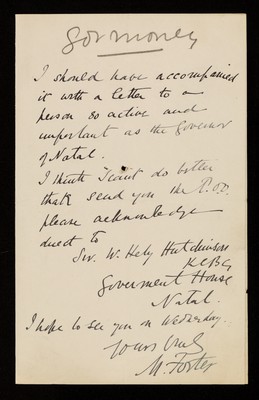 Gov money
I should have accompanied
it with a letter to a
person so active and
important as the Governor
of Natal.
I think I can't do better
than send you the P.O.O.
please acknowledge
direct to
Sir. W. Hely Hutchinson
KCBG
Goverment House
Natal.
I hope to see you on Wednesday.
Yours truly
M. Foster